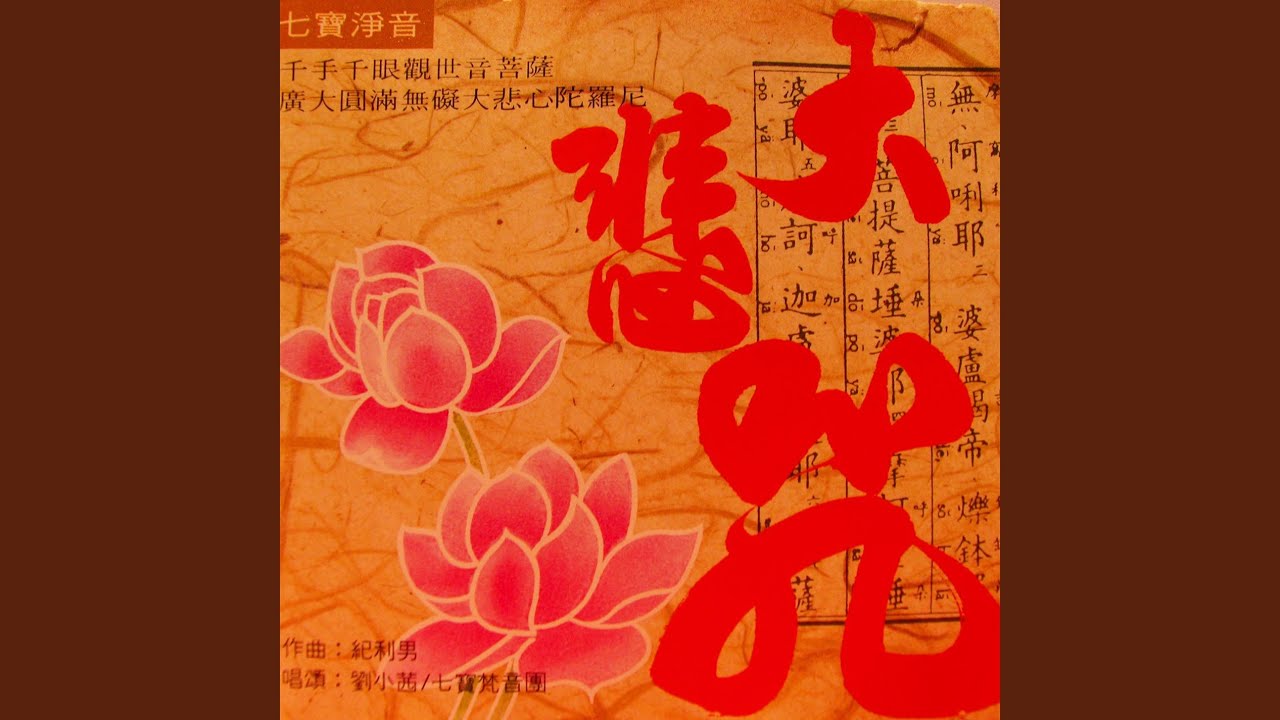 七寶淨音
千手千眼觀世音菩薩
廣大圓滿無礙大悲心陀羅尼
大悲咒
無、阿唎耶三 婆盧羯帝、爍鉢
三 菩提薩埵婆耶四 摩訶 埵
婆耶五 訶、迦盧 耶六 薩
作曲：紀利男
唱頌：劉小茜/七寶梵音團